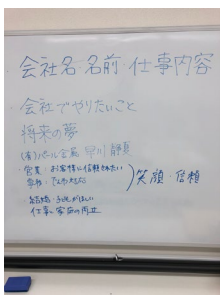 ・会社名・名前・仕事内容
・会社でやりたいこと
将来の夢
(有)パール金属 早川静真
・営業・お客様に信頼されたい
笑顔・信頼
結婚・子供がほしい
仕事と家庭の両立